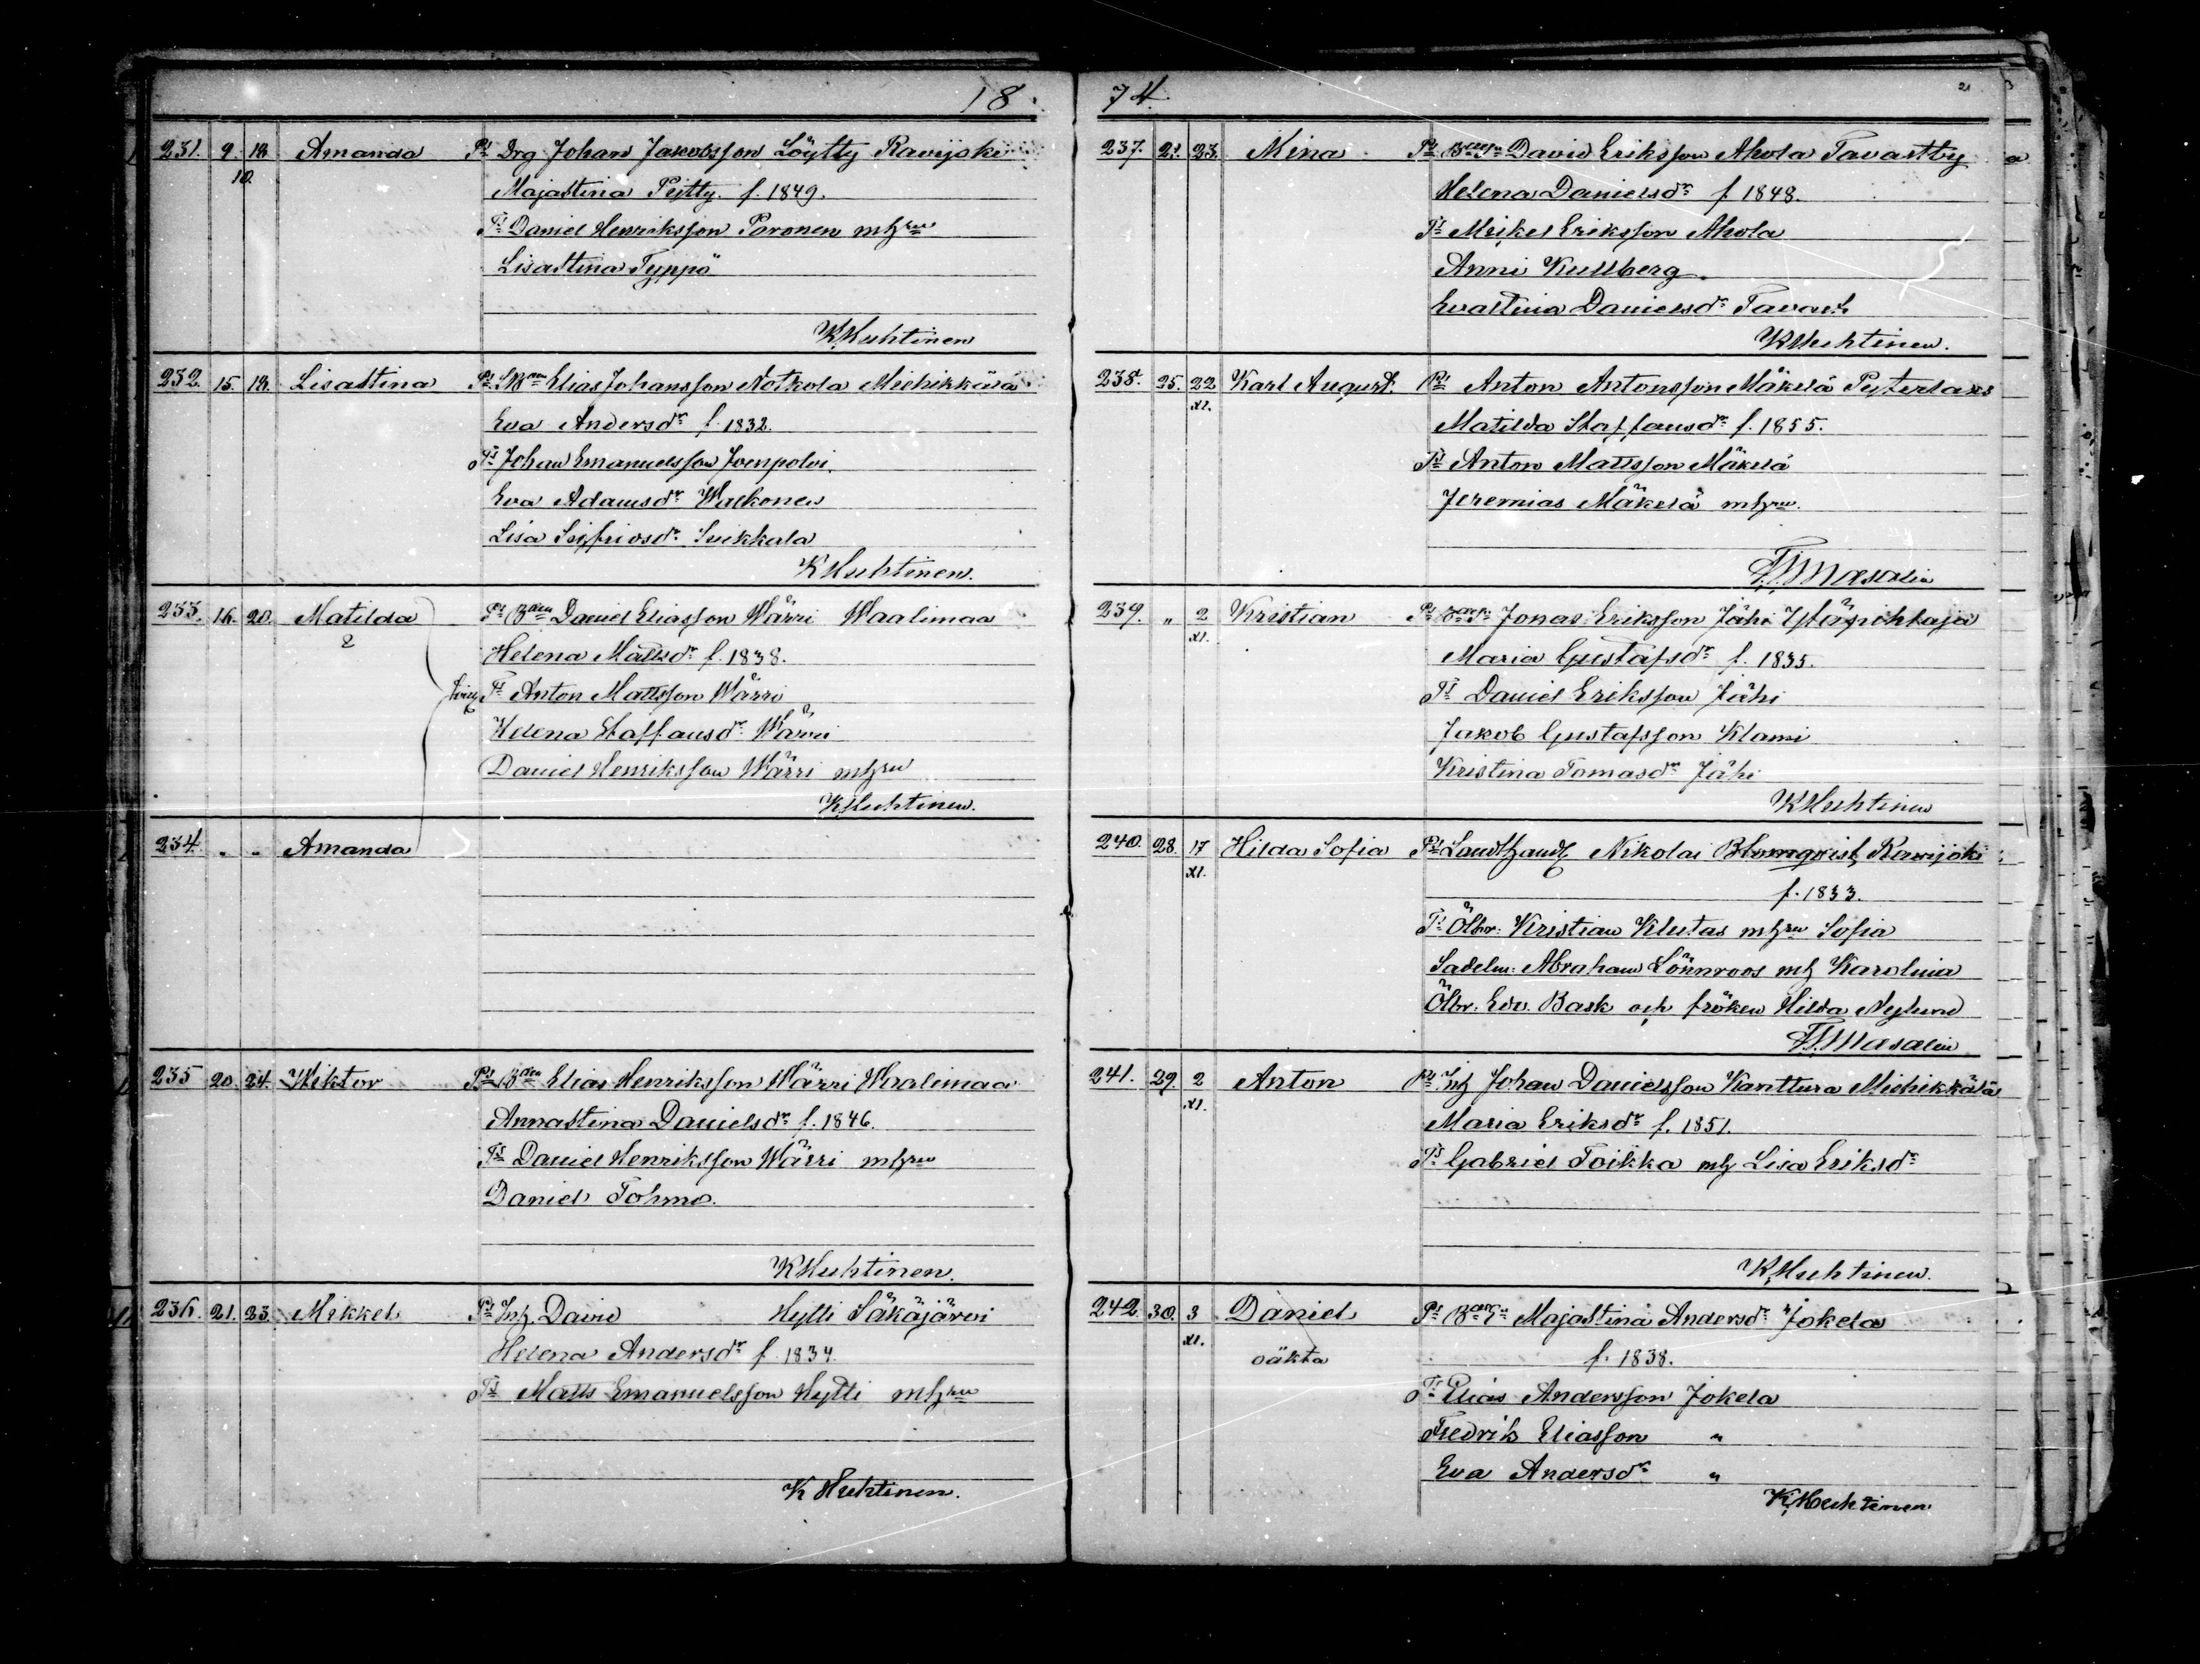 18
231. 9. 18. Amanda Ps Drg Johan Jakobsson Löytty Ravijoki
10.
Majastina Pejtty. f. 1849.
Ts Daniel Henriksson Poronen mhru
Lisastina Typpö
K Huhtinen
232. 15. 18. Lisastina Ps Elias Johansson Notkola Miehikkälä
Eva Andersdr f. 1832.
Ts Johan Emanuelsson Joenpolvi.
Eva Adamsdr Walkonen
Lisa Sigfridsdr Suikkala
K Huhtinen.
233. 16. 20. Matilda Ps Bden Daniel Eliasson Wärri Waalimaa
&
Helena Mattsdr f. 1838.
Ts Anton Mattsson Wärri
Helena Staffansdr Wärri
Daniel Henriksson Wärri mhru
K Huhtinen.
234. " " Amanda
235 20. 24. Wiktor Ps Bden Elias Henriksson Wärri Waalimaa
Annastina Danielsdr f. 1846.
Ts Daniel Henriksson Wärri mhru
Daniel Tohmo.
K Huhtinen.
236. 21. 23. Mikkel Ps Inh. David Hytti Säkäjärvi
Helena Andersdr f. 1834.
Ts Matts Emanuelsson Hytti mhru
K Huhtinen.
74.
237. 21. 23. Mina Ps David Eriksson Ahola Tavastby
Helena Danielsdr f. 1848.
Ts Mikel Eriksson Ahola
Anni Kullberg.
Evastina Danielsdr Tavast
K Huhtinen.
238. 25. 22 Karl August. Ps Anton Antonsson Mäkelä Pyterlaks
XI.
Matilda Staffansdr f. 1855.
Ts Anton Mattsson Mäkelä
Jeremias Mäkelä mhru.
Masalin
239. " 2 Kristian Ps Jonas Eriksson Jähi Yläpihlaja
XI.
Maria Gustafsdr f. 1835.
Ts Daniel Eriksson Jähi
Jakob Gustafsson Klami
Kristina Tomasdr Jähi
K Huhtinen
240. 28. 17 Hilda Sofia Ps Landthandl Nikolai Blomqvist, Ravijoki
XI.
f. 1833.
Ts Ölbr: Kristian Klutas mhru Sofia
Sadelm: Abraham Lönnroos mh Karolina
Ölbr: Edv. Bask och fröken Hilda Nylund
Masalin
241. 29. 2 Anton Ps Inh Johan Danielsson Kanttura Miehikkälä
XI.
Maria Eriksdr f. 1851.
Ts Gabriel Toikka mh Lisa Eriksdr
K Huhtinen.
242. 30. 3 Daniel Ps Majastina Andersdr Jokela
XI.
oäkta f. 1838.
Ts Elias Andersson Jokela
Fredrik Eliasson "
Eva Andersdr "
K Huhtinen